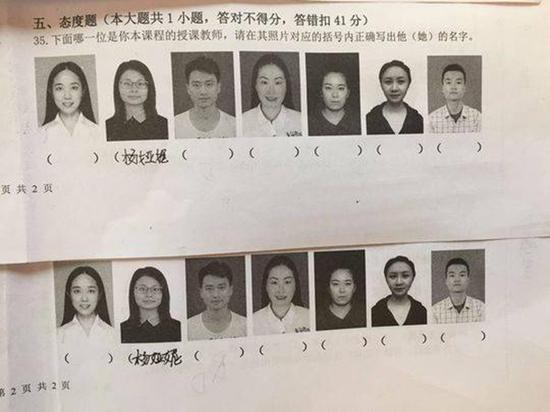 五、态度题（本大题共1小题，答对不得分，答错扣41分）
35.下面哪一位是你本课程的授课教师，请在其照片对应的括号内正确写出他（她）的名字。
（ ） （ ） （ ） （ ） （ ） （ ） （ ）
页 共 2 页
（ ） （ ） （ ） （ ） （ ） （ ） （ ）
第 2 页 共 2 页